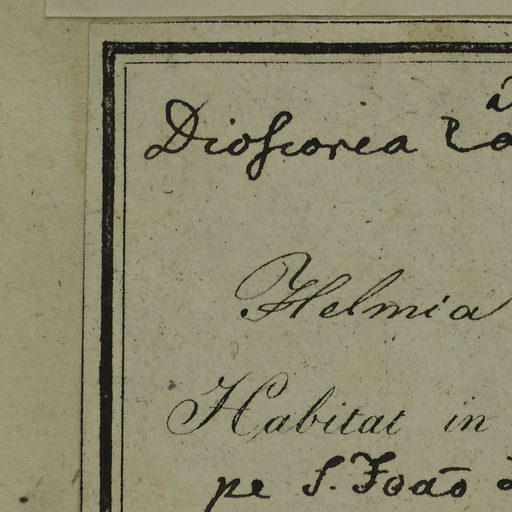 Dioscorea
Helmia
Habitat in
pe S. João